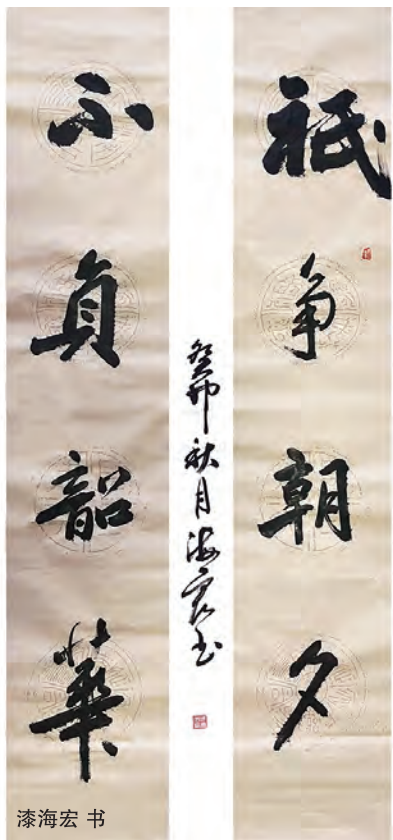 祇争朝夕
不負韶華
癸卯秋月海宏书
漆海宏 书